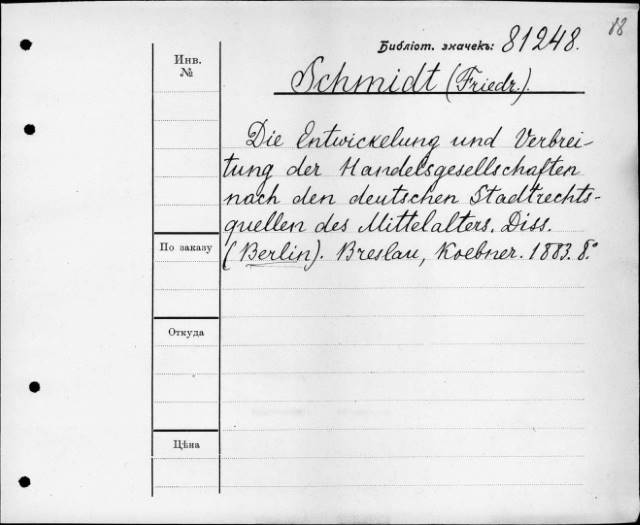 18
Библіот. значекъ: 81248.
Инв.
№
Schmidt (Friedr.).
Die Entwickelung und Verbrei-
tung der Handelsgesellschaften
nach den deutschen Stadtrechts-
quellen des Mittelalters. Diss.
(Berlin). Breslau, Koebner. 1883. 8.°
По заказу
Откуда
Цѣна